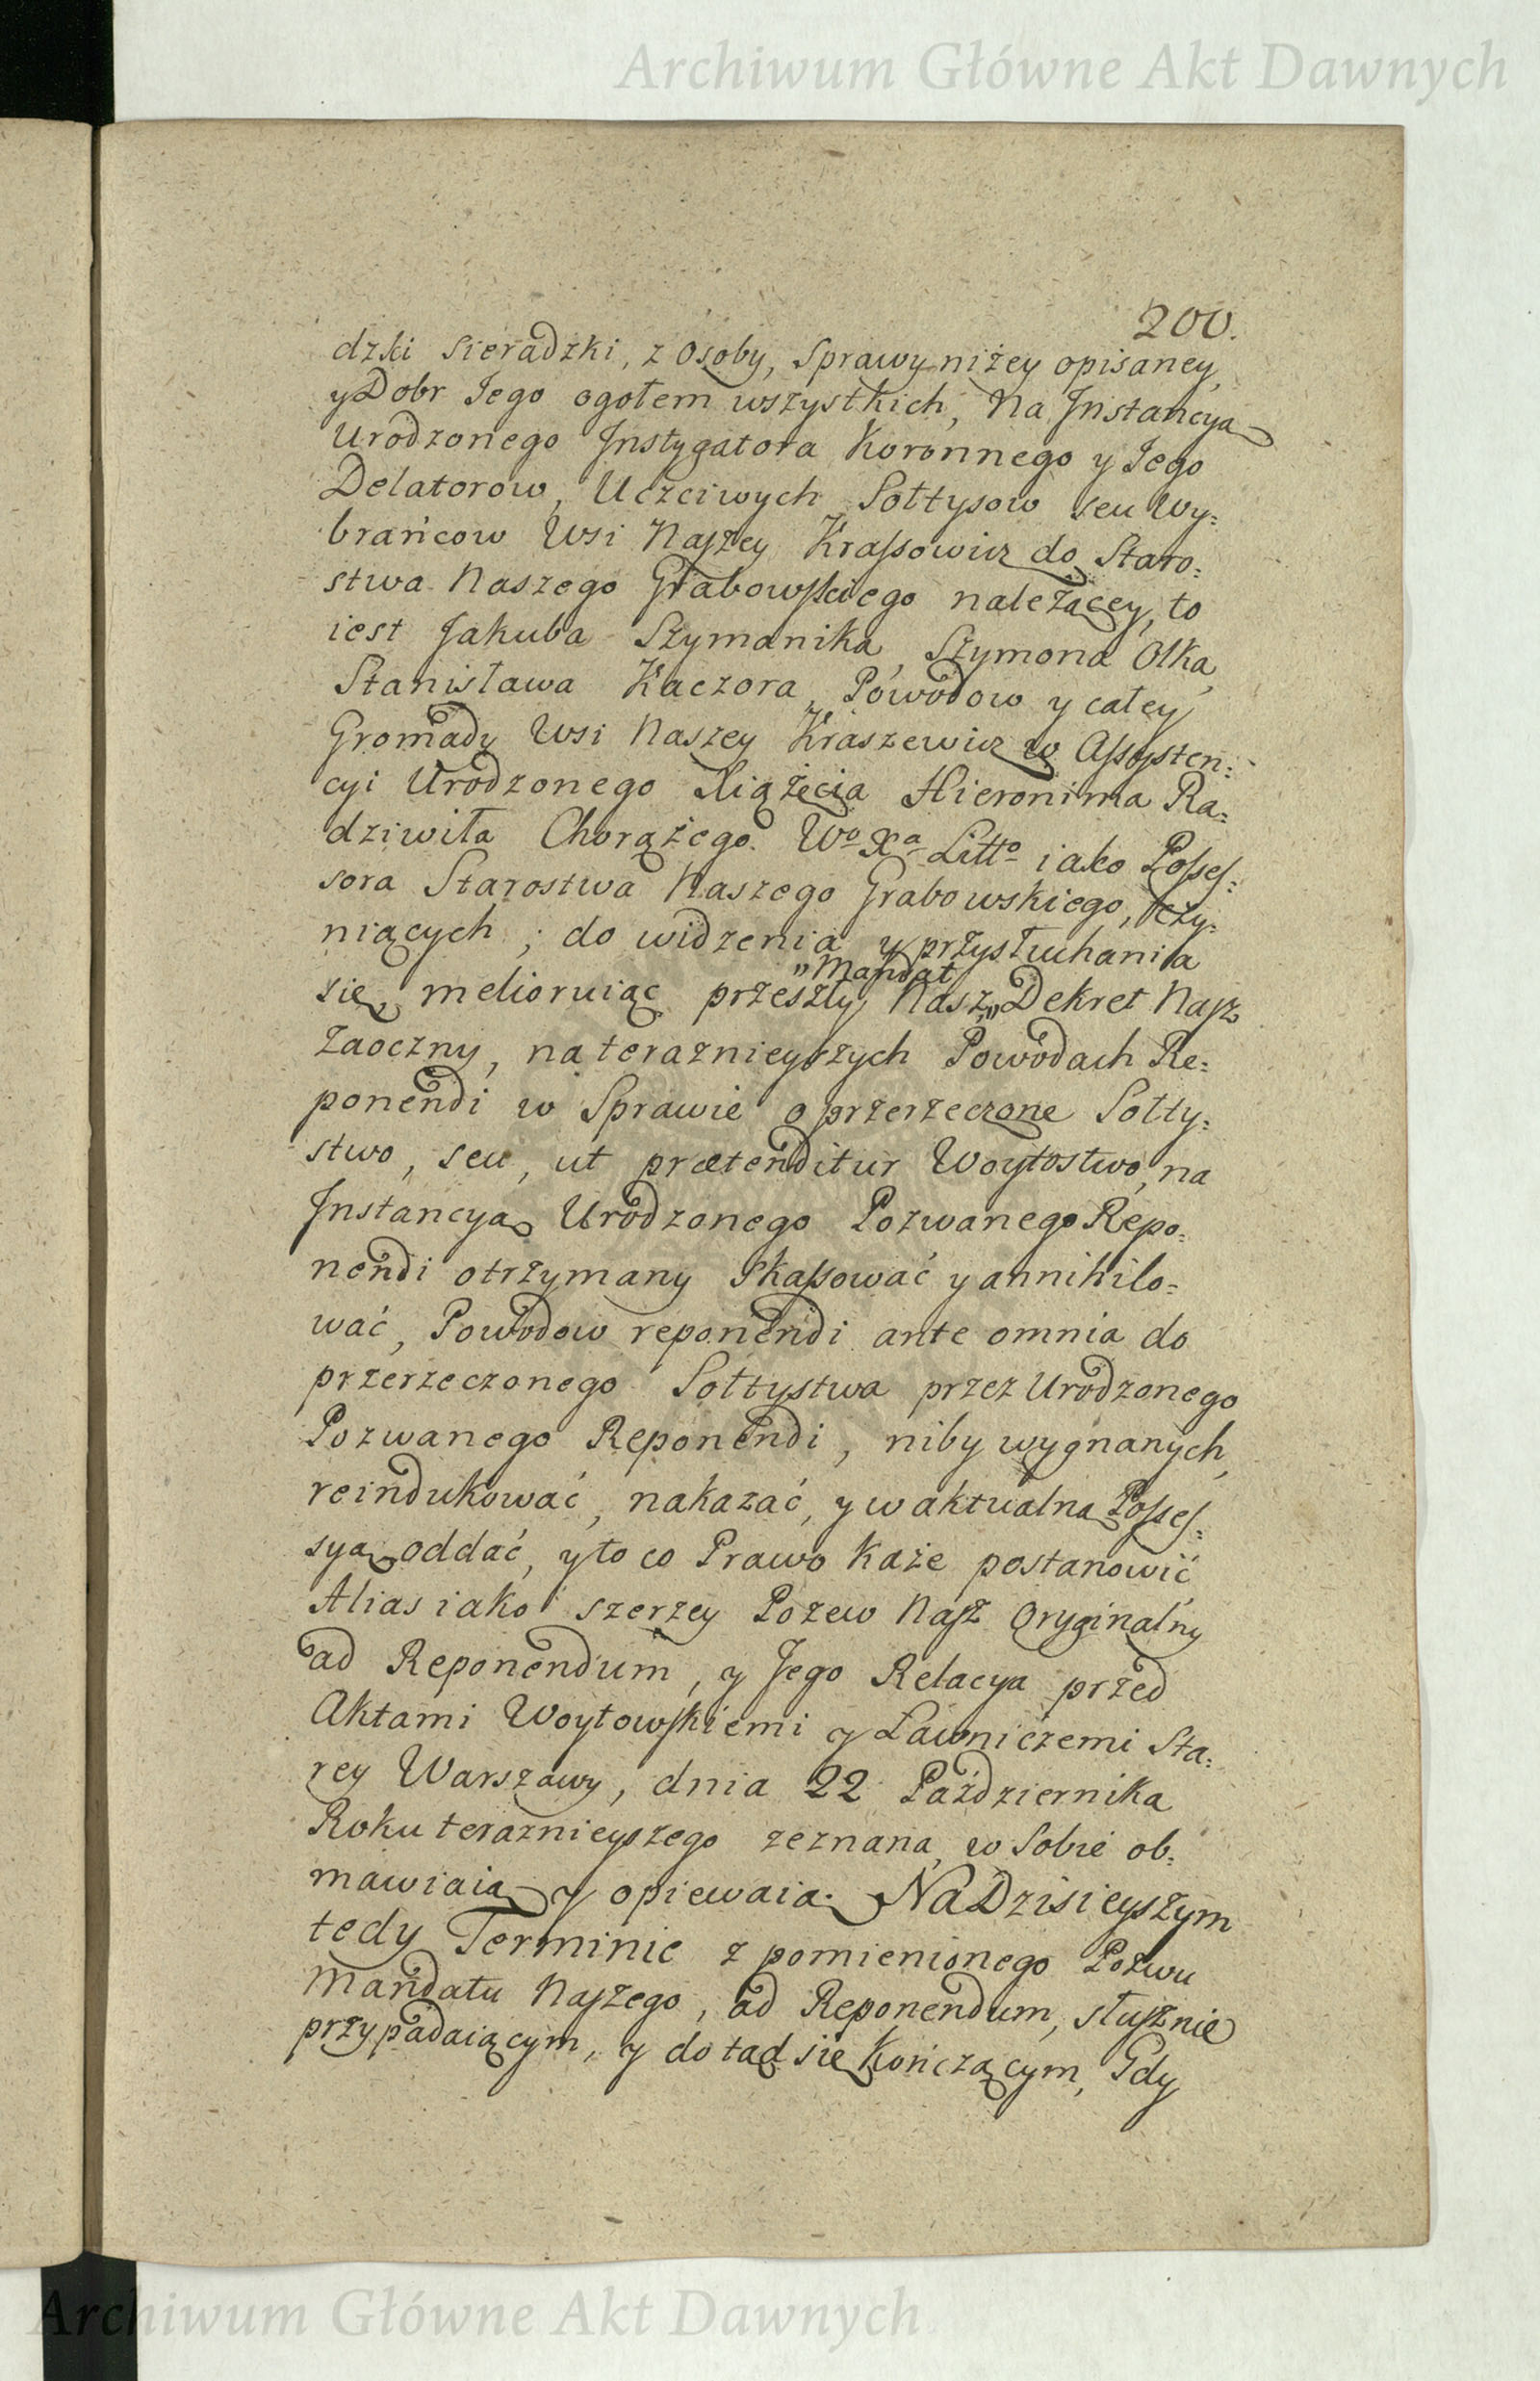 Archiwum Główne Akt Dawnych
200.
dzki Sieradzki, z Osoby, Sprawy niżey opisaney,
y Dobr Jego ogołem wszystkich, Na Jnstancyą
Urodzonego Jnstygatora Koronnego y Jego
Delatorow, Uczciwych Sołtysow seu Wy=
brańcow Wsi Naszey Krassowicz do Staro=
stwa Naszego Grabowskiego należącey, to
iest Jakuba Szymanika, Szymona Olka,
Stanisława Kaczora, Powodow y całey
Gromady Wsi Naszey Kraszewicz w Assysten=
cyi Urodzonego Xiążęcia Hieronima Ra=
dziwiła Chorążego Wo Xa Litto iako Posses=
sora Starostwa Naszego Grabowskiego, czy=
niących; do widzenia y przysłuchania
„Mandat
się, melioruiąc przeszły Nasz„ Dekret Nasz
Zaoczny, na teraznieyszych Powodach Re=
ponendi w Sprawie o przerzeczone Sołty=
stwo, seu, ut prætenditur Woytostwo, na
Jnstancyą Urodzonego Pozwanego Repo=
nendi otrzymany skassować y annihilo=
wać, Powodow reponendi ante omnia do
przerzeczonego Sołtystwa przez Urodzonego
Pozwanego Reponendi, niby wygnanych,
reindukować, nakazać, y w aktualną Posses=
syą oddać, y to co Prawo każe postanowić,
Alias iako szerzey Pozew Nasz Oryginalny
ad Reponendum, y Jego Relacya przed
Aktami Woytowskiemi y Ławniczemi Sta=
rey Warszawy, dnia 22 Października
Roku teraznieyszego zeznana, w sobie ob=
mawiaią y opiewaią. Na Dzisieyszym
tedy Terminie z pomienionego Pozwu
Mandatu Naszego, ad Reponendum, słusznie
przypadaiącym, y do tąd się kończącym, Gdy
Archiwum Główne Akt Dawnych